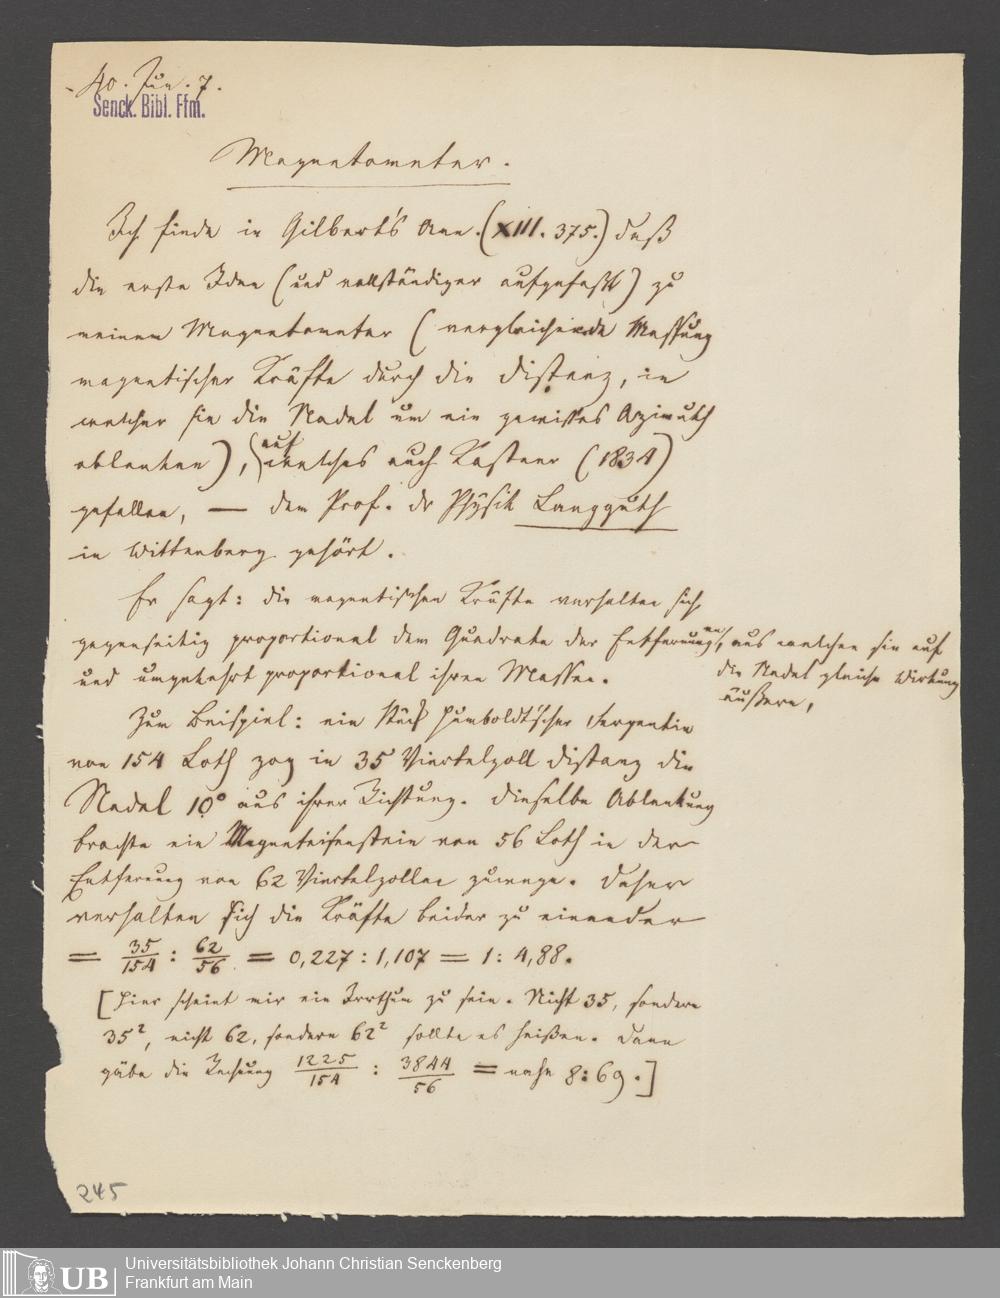 40. Jun. 7.
Senck. Bibl. Ffm.
Magnetometer.
Ich finde in Gilbert's Ann. (XIII. 375.) daß
die erste Idee (und vollständiger aufgefaßt) zu
meinem Magnetometer (vergleichende Messung
magnetischer Kräfte durch die Distanz, in
welcher sie die Nadel um ein gewisses Azimuth
ablenken), auf welches auch Kastner (1834)
gefallen, — dem Prof. der Physik Langguth
in Wittenberg gehört.
Er sagt: die magnetischen Kräfte verhalten sich
gegenseitig proportional dem Quadrate der Entfernungen, aus welchen sie auf
die Nadel gleiche Wirkung
äußern,
und umgekehrt proportional ihren Massen.
Zum Beispiel: ein Stück Humboldt'scher Serpentin
von 154 Loth zog in 35 Viertelzoll Distanz die
Nadel 10° aus ihrer Richtung. Dieselbe Ablenkung
brachte ein Magneteisenstein von 56 Loth in der
Entfernung von 62 Viertelzollen zuwege. Daher
verhalten sich die Kräfte beider zu einander
= 35/154 : 62/56 = 0,227 : 1,107 = 1 : 4,88.
[Hier scheint mir ein Irrthum zu sein. Nicht 35, sondern
35², nicht 62, sondern 62² sollte es heißen. Dann
gäbe die Rechnung 1225/154 : 3844/56 = nahe 8 : 69.]
245
UB
Universitätsbibliothek Johann Christian Senckenberg
Frankfurt am Main